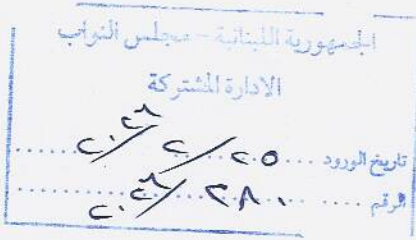 الجمهورية اللبنانية - مجلس النواب
الادارة المشتركة
تاريخ الورود ٢٥ / ٢ / ٢٠٢٦
الرقم ٢٨٠ / ٢٠٢٦